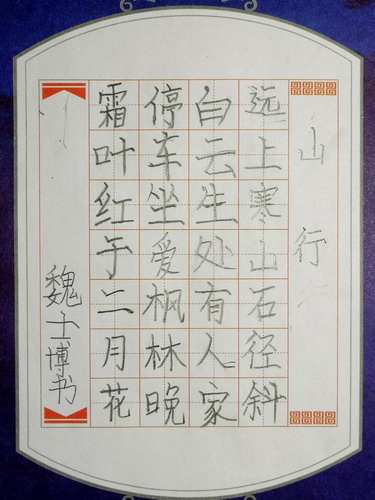 山行
远上寒山石径斜
白云生处有人家
停车坐爱枫林晚
霜叶红于二月花
魏士博书